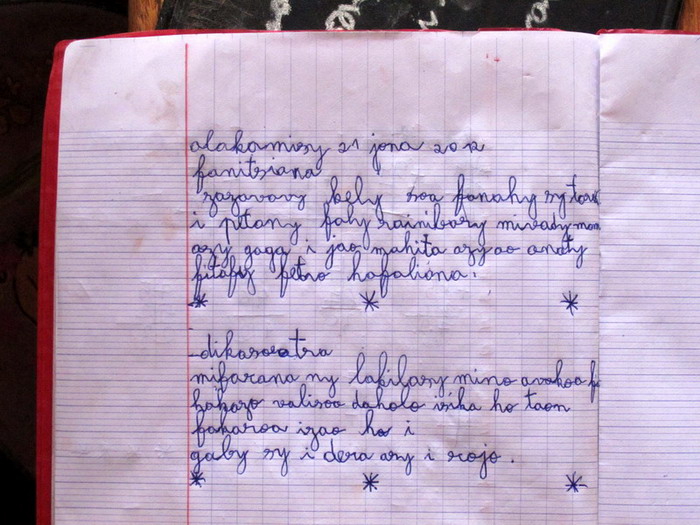 alakamisy 21 jona 2012
fanitsiana
zazavavy kely soa fanahy sy
i petany faly rainibary mivady
ary gaga i jao mahita azy ao anaty
fitafy fetro hafaliana.
- dikasoratra
mifarana ny lakilasy mino avokoa
hahazo valisoa daholo isika ho taon
faharoa izao ho i
gaby sy i dera ary i rojo.